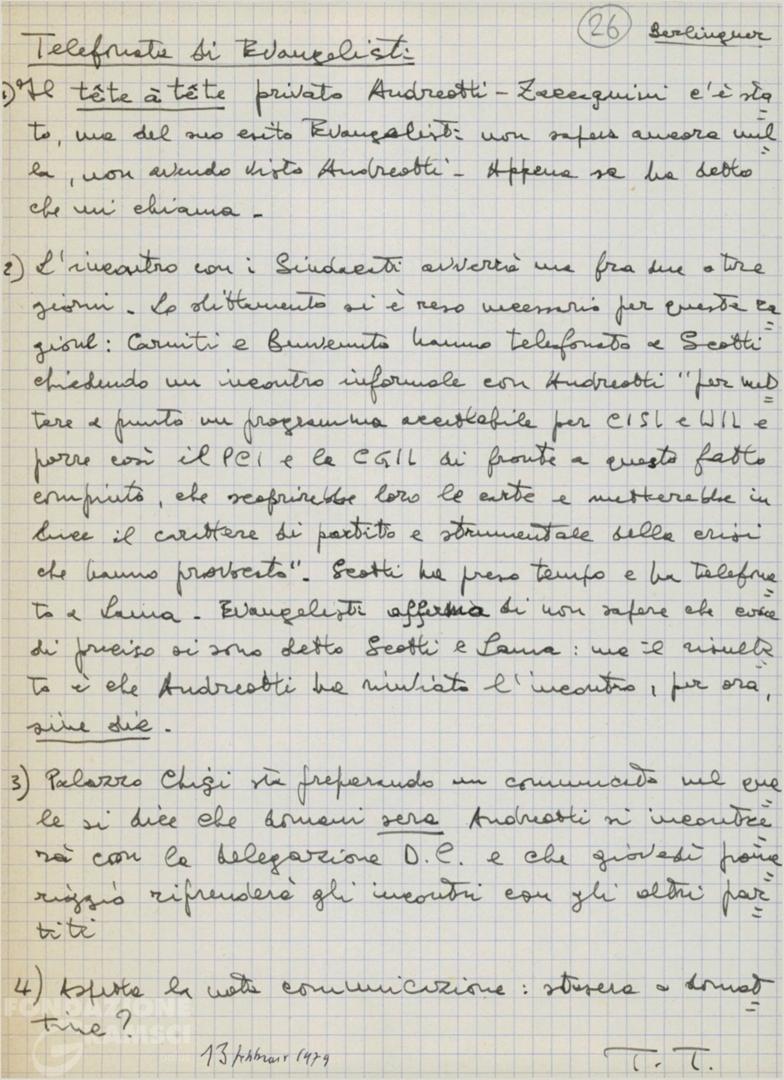 26 Berlinguer
Telefonata di Evangelisti
1) Il tête à tête privato Andreotti - Zaccagnini c'è sta=
to, ma del suo esito Evangelisti non sapeva ancora nul=
la, non avendo visto Andreotti - Appena sa ha detto
che mi chiama -
2) L'incontro con i Sindacati avverrà ma fra due o tre
giorni - Lo slittamento si è reso necessario per questa ra=
gione: Carniti e Benvenuto hanno telefonato a Scotti
chiedendo un incontro informale con Andreotti "per met=
tere a punto un programma accettabile per CISL e UIL e
porre così il PCI e la CGIL di fronte a questo fatto
compiuto, che scoprirebbe loro le carte e metterebbe in
luce il carattere di partito e strumentale della crisi
che hanno provocato". Scotti ha preso tempo e ha telefona=
to a Lama - Evangelisti afferma di non sapere che cosa
di preciso si sono detto Scotti e Lama: ma il risulta=
to è che Andreotti ha rinviato l'incontro, per ora,
sine die.
3) Palazzo Chigi sta preparando un comunicato nel qua=
le si dice che domani sera Andreotti si incontre=
rà con la delegazione D.C. e che giovedì pome=
riggio riprenderà gli incontri con gli altri par=
titi
4) Aspetto la nota comunicazione: stasera o domat=
tina?
13 febbraio 1979 T. T.
FONDAZIONE
GRAMSCI